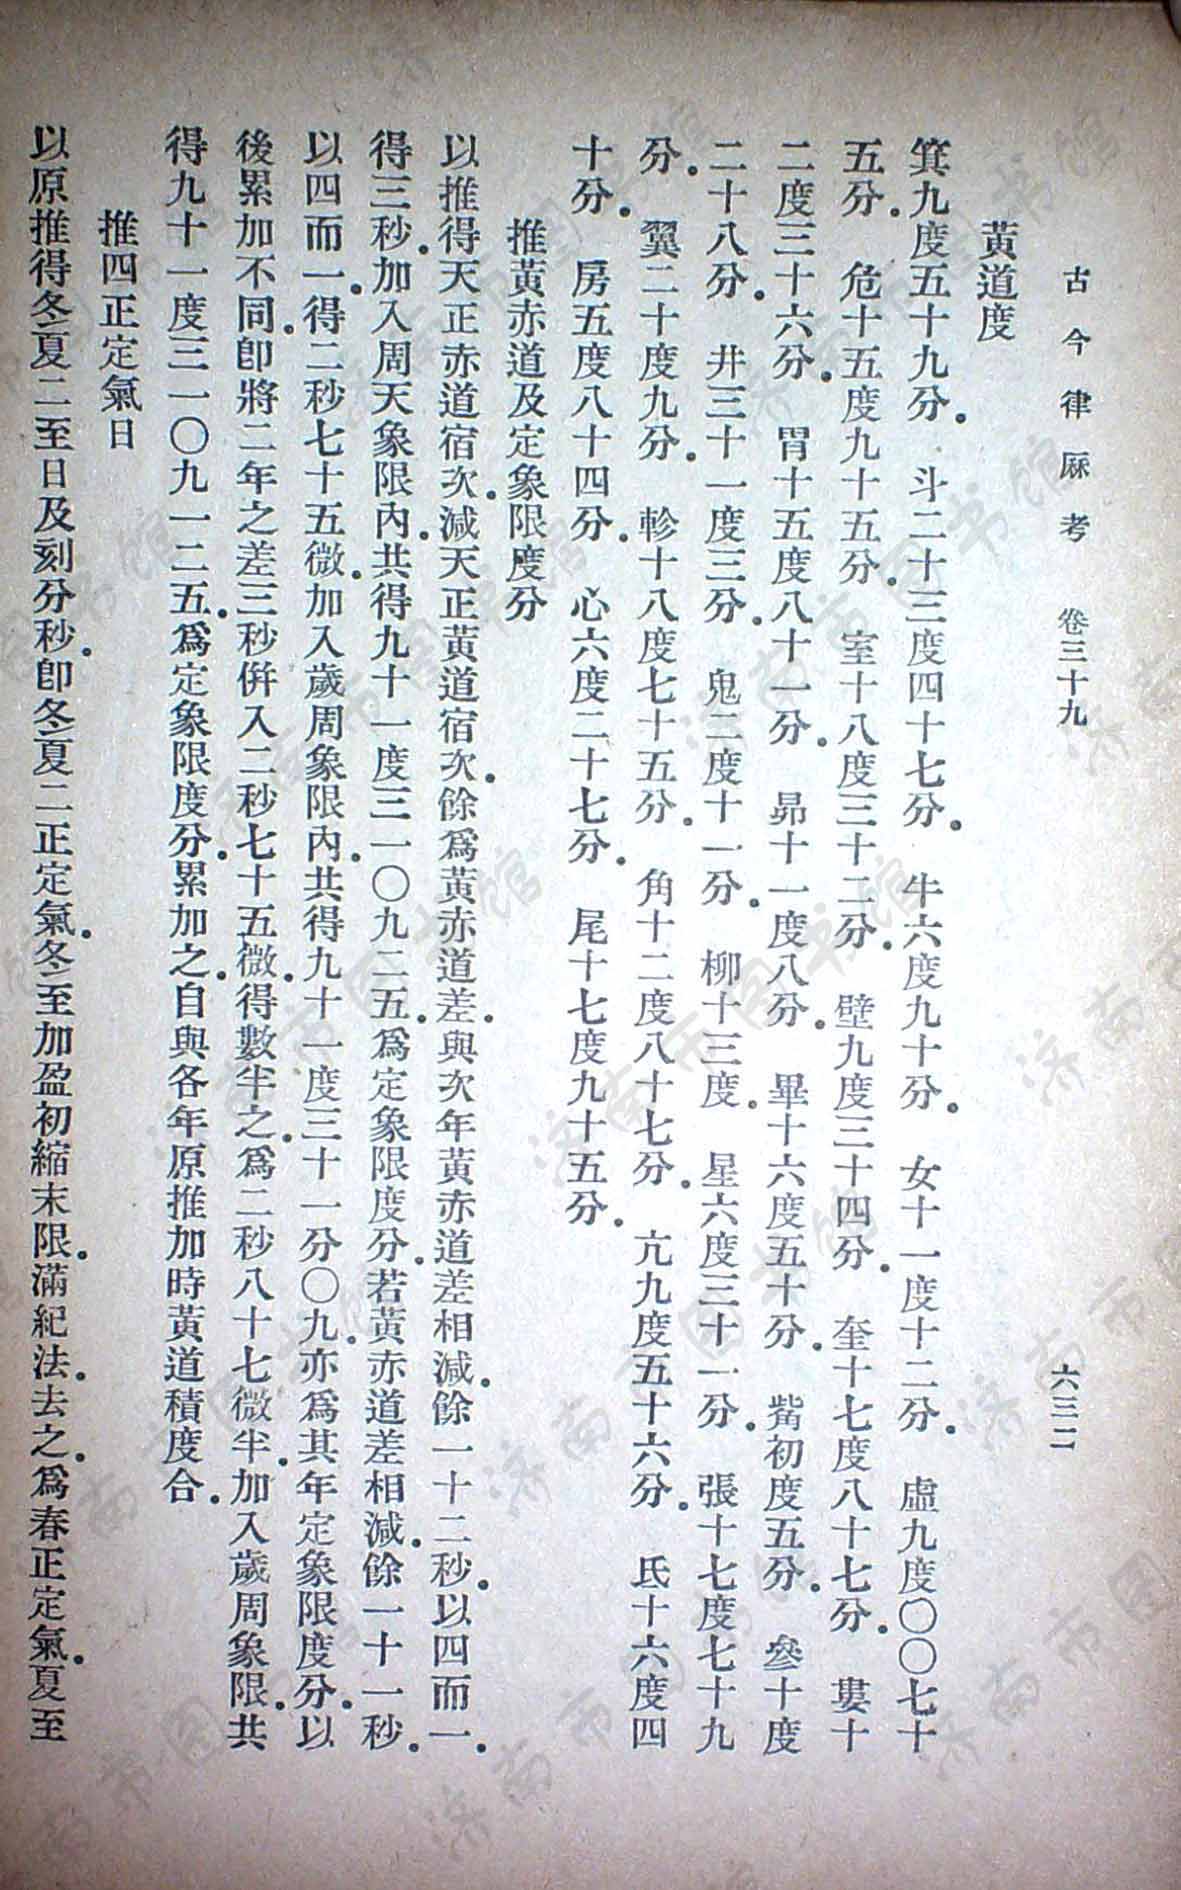 古今律厤考　卷三十九　六三二
黃道度
箕九度五十九分。　斗二十三度四十七分。　牛六度九十分。　女十一度十二分。　虛九度〇〇七十
五分。　危十五度九十五分。　室十八度三十二分。　壁九度三十四分。　奎十七度八十七分。　婁十
二度三十六分。　胃十五度八十一分。　昴十一度八分。　畢十六度五十分。　觜初度五分。　參十度
二十八分。　井三十一度三分。　鬼二度十一分。　柳十三度。　星六度三十一分。　張十七度七十九
分。　翼二十度九分。　軫十八度七十五分。　角十二度八十七分。　亢九度五十六分。　氐十六度四
十分。　房五度八十四分。　心六度二十七分。　尾十七度九十五分。
推黃赤道及定象限度分
以推得天正赤道宿次。減天正黃道宿次。餘爲黃赤道差。與次年黃赤道差相減。餘一十二秒。以四而一。
得三秒。加入周天象限內。共得九十一度三一〇九二五。爲定象限度分。若黃赤道差相減。餘一十一秒。
以四而一。得二秒七十五微。加入歲周象限內。共得九十一度三十一分〇九。亦爲其年定象限度分。以
後累加不同。卽將二年之差三秒併入二秒七十五微。得數半之。爲二秒八十七微半。加入歲周象限。共
得九十一度三一〇九一二五。爲定象限度分。累加之。自與各年原推加時黃道積度合。
推四正定氣日
以原推得冬夏二至日及刻分秒。卽冬夏二正定氣。冬至加盈初縮末限。滿紀法。去之。爲春正定氣。夏至